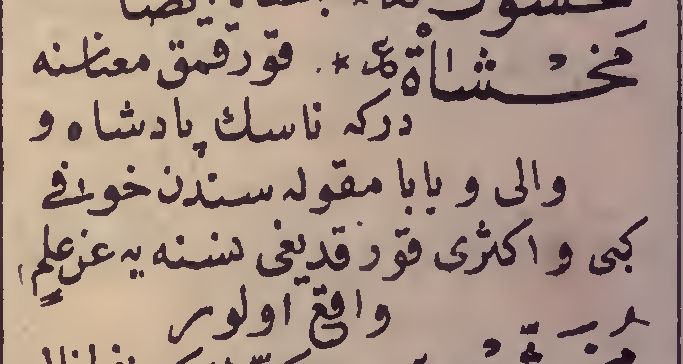 مَخْشَاْة ع * . قورقمق معناسنه
دركه ناسك پادشاه و
والى و بابا مقوله سندن خوفى
كبى و اكثرى قورقديغى نسنه يه عن علمٍ
واقع اولور